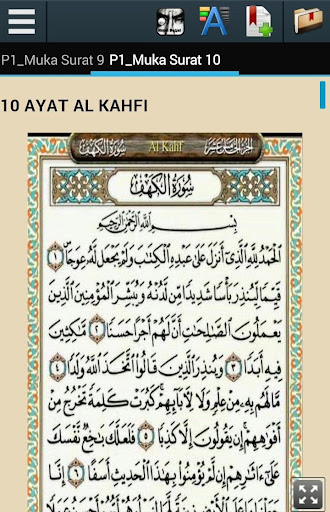 P1_Muka Surat 9 P1_Muka Surat 10
10 AYAT AL KAHFI
سُورَةُ الكَهْفِ Al Kahf الجزء الخامس عشر
سُورَةُ الكَهْفِ
بِسْمِ اللَّهِ الرَّحْمَٰنِ الرَّحِيمِ
الْحَمْدُ لِلَّهِ الَّذِي أَنْزَلَ عَلَىٰ عَبْدِهِ الْكِتَٰبَ وَلَمْ يَجْعَلْ لَهُ عِوَجًا ۜ ١
قَيِّمًا لِيُنْذِرَ بَأْسًا شَدِيدًا مِنْ لَدُنْهُ وَيُبَشِّرَ الْمُؤْمِنِينَ الَّذِينَ
يَعْمَلُونَ الصَّٰلِحَٰتِ أَنَّ لَهُمْ أَجْرًا حَسَنًا ٢ مَٰكِثِينَ
فِيهِ أَبَدًا ٣ وَيُنْذِرَ الَّذِينَ قَالُوا اتَّخَذَ اللَّهُ وَلَدًا ٤
مَا لَهُمْ بِهِ مِنْ عِلْمٍ وَلَا لِآبَائِهِمْ كَبُرَتْ كَلِمَةً تَخْرُجُ مِنْ
أَفْوَٰهِهِمْ إِنْ يَقُولُونَ إِلَّا كَذِبًا ٥ فَلَعَلَّكَ بَٰخِعٌ نَفْسَكَ
عَلَىٰ آثَٰرِهِمْ إِنْ لَمْ يُؤْمِنُوا بِهَٰذَا الْحَدِيثِ أَسَفًا ٦
إِنَّا جَعَلْنَا مَا عَلَى الْأَرْضِ زِينَةً لَهَا لِنَبْلُوَهُمْ أَيُّهُمْ أَحْسَنُ عَمَلًا